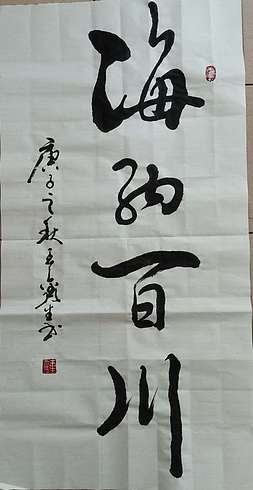 海纳百川
庚子之秋王
书